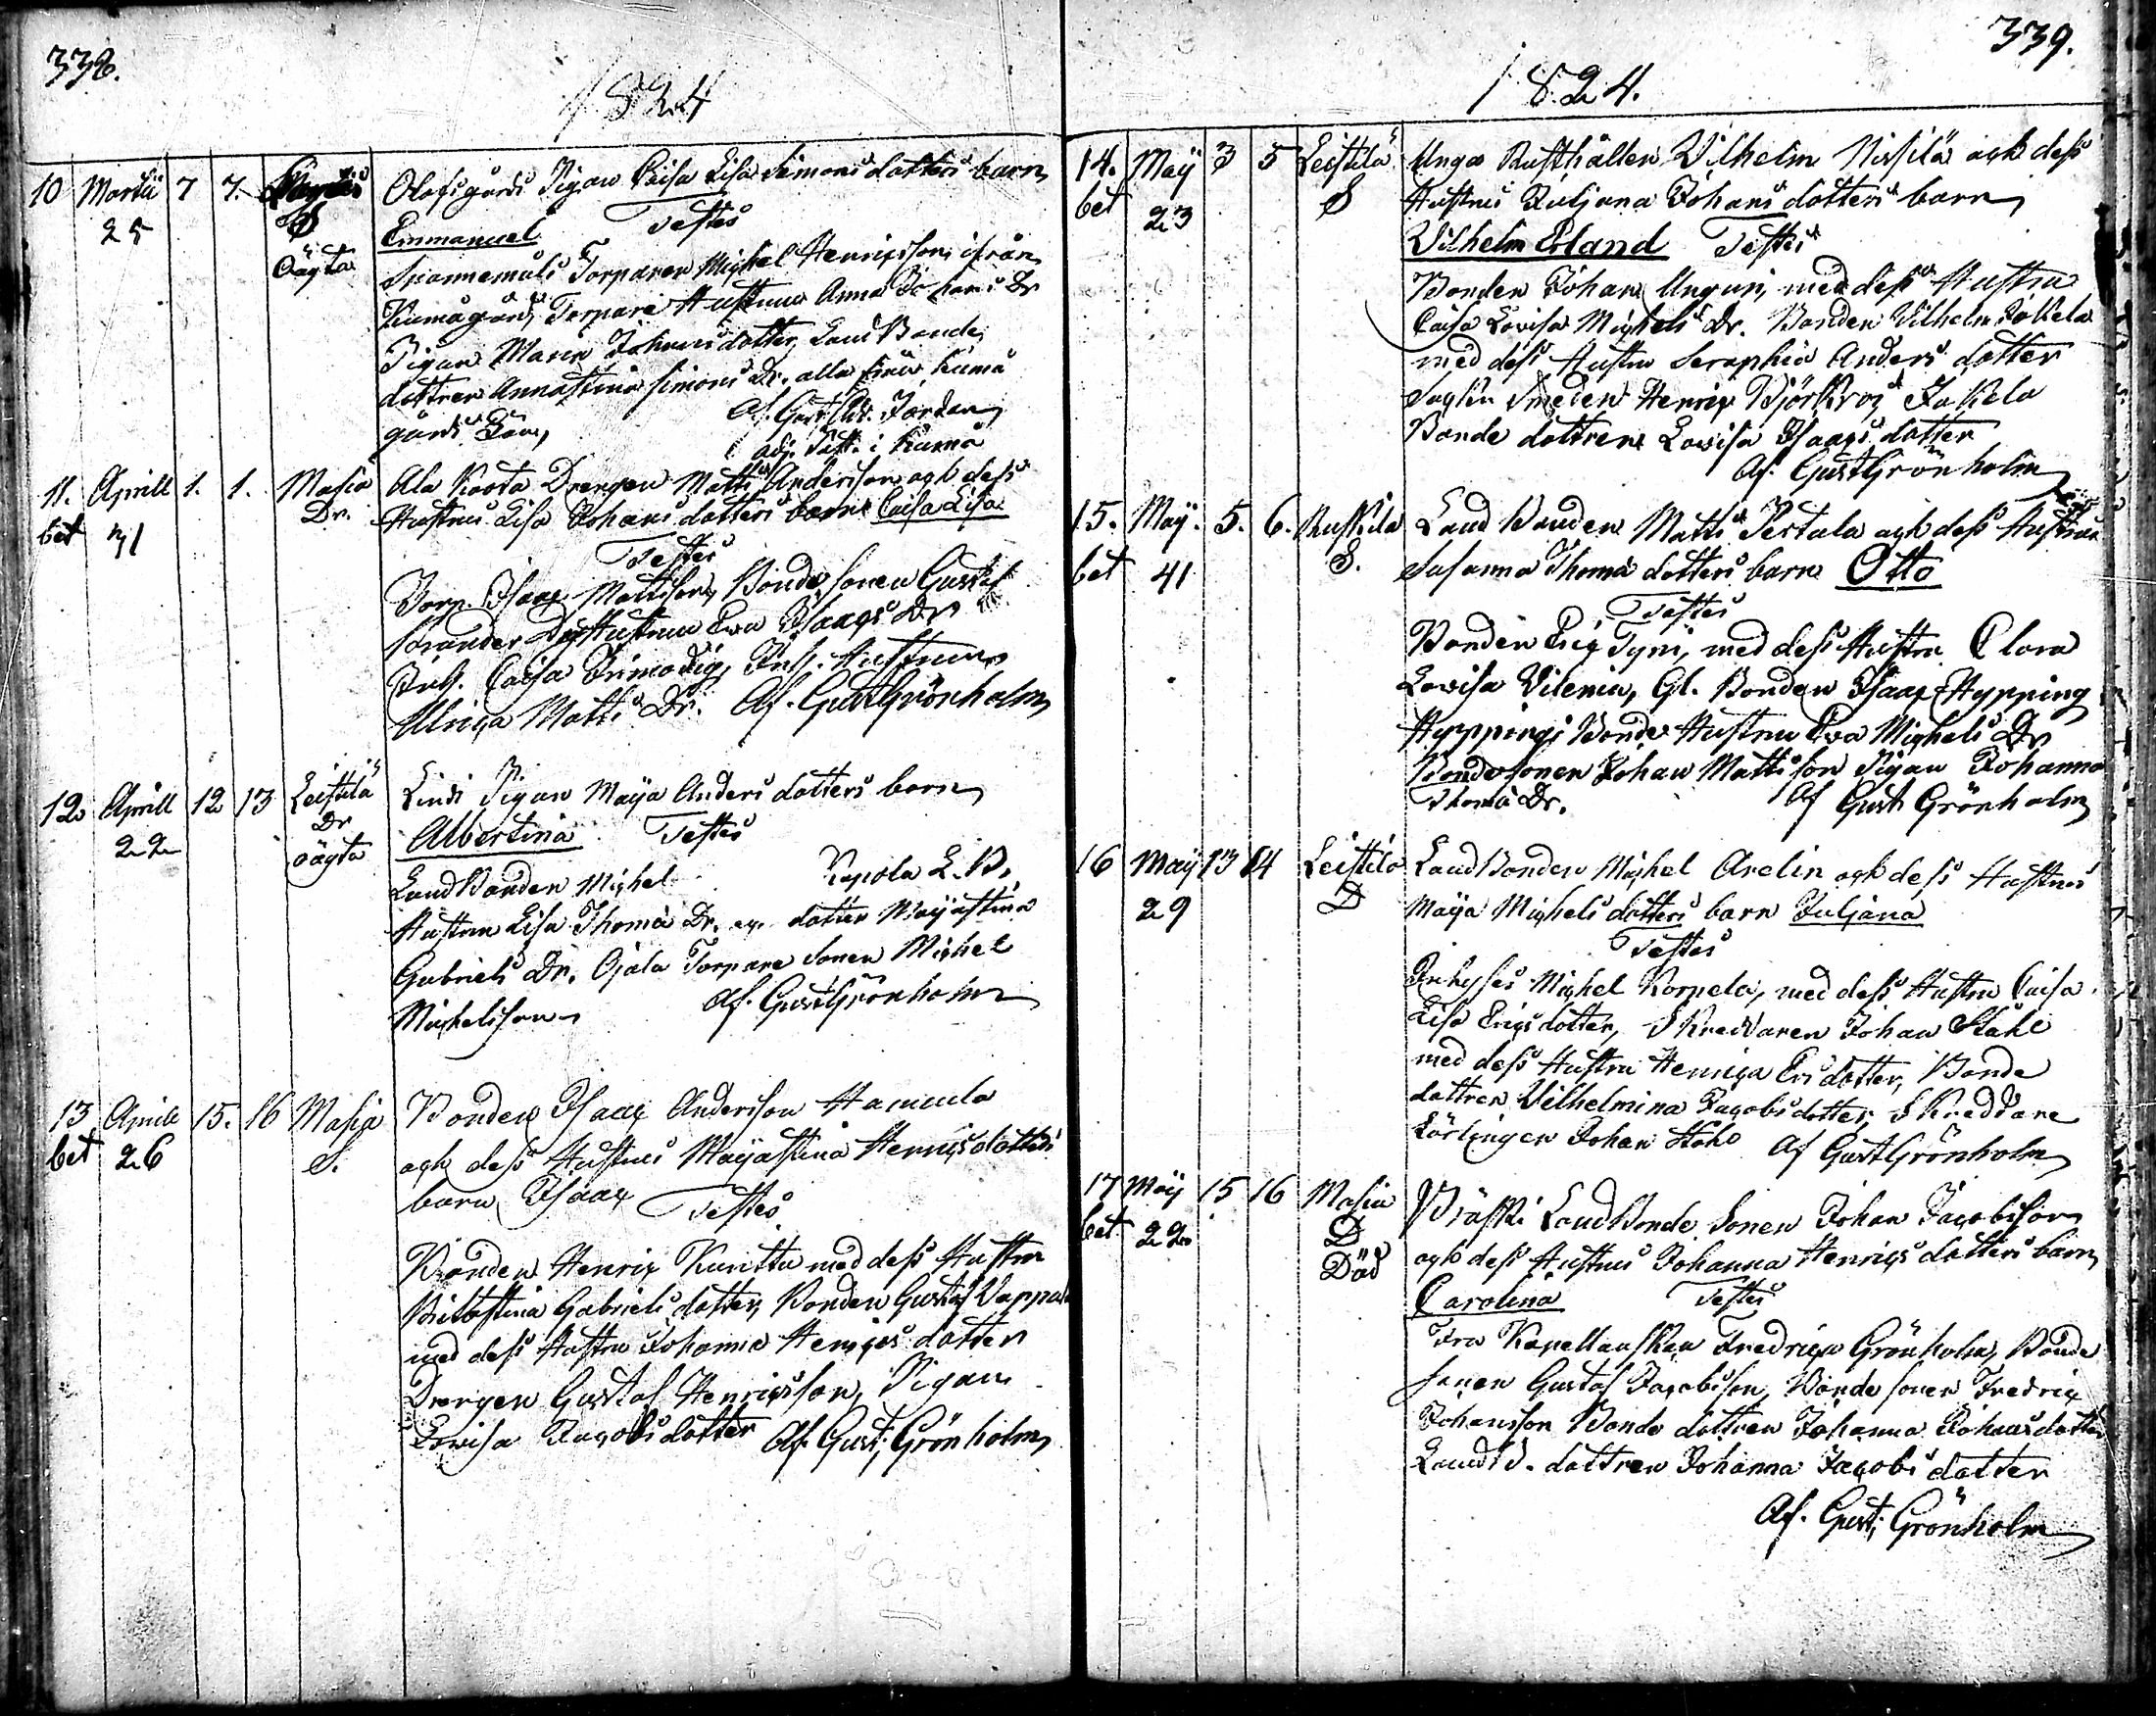 338.
1824
10 Martii 7 7. S Olofsgårds Pigan Caisa Lisa Simons dotters barn
25 Oägta Emmanuel Testes
Torparen Michel Henricsson ifrån
Kiumagårds Torpare Hustrun Anna Johans Dr
Pigan Maria Johans dotter, Land Bonde
dottren Annastina Simons Dr. alla från Kiumo
gårds
Af. Gust. Ad. Jordan
adj. Past. i Kiumo
11. Aprill 1. 1. Masia Ala Koota Drengen Matts Andersson och dess
bet 31 Dr. Hustrus Lisa Johans dotters barn Caisa Lisa
Testes
Torp. Isaac Mattsson, Bonde sonen Gustaf
Hustrun Eva Isaacs Dr
Inh. Caisa Frimodig, Inh. Hustrun
Ulrica Matts Dr. Af. Gust Grönholm
12 Aprill 12 13 Leistilä Lindi Pigan Maija Anders dotters barn
22 Dr oägta Albertina Testes
Land Bonden Michel Kepola L. B.
Hustrun Lisa Thomæ Dr. dotter Maijastina
Gabriels Dr. Ojala Torpare Sonen Michel
Michelsson Af. Gust Grönholm
13 Aprill 15. 16 Masia Bonden Isaac Andersson Hannula
bet 26 S. och dess Hustrus Maijastina Henrics dotters
barn Isaac Testes
Bonden Henric Kunttu med dess Hustru
Britastina Gabriels dotter, Bonden Gustaf Uappa
med dess Hustru Johanna Henrics dotter
Drengen Gustaf Henricsson, Pigan
Lovisa Jacobs dotter Af. Gust. Grönholm
339.
1824.
14. May 3 5 Leistilä Unga Rusthållen Vilhelm Nissilä och dess
bet 23 S Hustrus Juljana Johans dotters barn
Vilhelm Erland Testes
Bonden Johan Unguri, med dess Hustru
Caisa Lovisa Michels Dr. Bonden Vilhelm Jakela
med dess Hustru Seraphia Anders dotter
Sockn Smeden Henric Björkroj Jakela
Bonde dottren Lovisa Isaacs dotter
Af. Gust Grönholm
15. May. 5. 6. Ruskila Land Bonden Matts Pertula och dess Hustrus
bet 41 S. Susanna Thomæ dotters barn Otto
Testes
Bonden Eric Tyni, med dess Hustru Clara
Lovisa Vilenia, Gl. Bonden Isaac Hypping
Hyppings Bonde Hustrun Eva Michels Dr
Bonde sonen Johan Mattsson Pigan Johanna
Thomæ Dr. Af Gust Grönholm
16 May 13 14 Leistilä Land Bonden Michel Arelin och dess Hustrus
29 D Maija Michels dotters barn Juljana
Testes
Inhyses Michel Korpela, med dess Hustru Caisa
Lisa Erics dotter, Skreddaren Johan Ståhl
med dess Hustru Henrica Ers dotter, Bonde
dottren Vilhelmina Jacobs dotter, Skreddare
Lärlingen Johan Ståhl Af Gust Grönholm
17 May 15 16 Masia Präski Land Bonde Sonen Johan Jacobsson
bet 22 D Död och dess Hustrus Johanna Henrics dotters barn
Carolina Testes
Fru Kapellanskan Fredrica Grönholm, Bonde
sonen Gustaf Jacobsson, Bonde sonen Fredric
Johansson Bonde dottren Johanna Johans dotter
Land B. dottren Johanna Jacobs dotter
Af. Gust. Grönholm